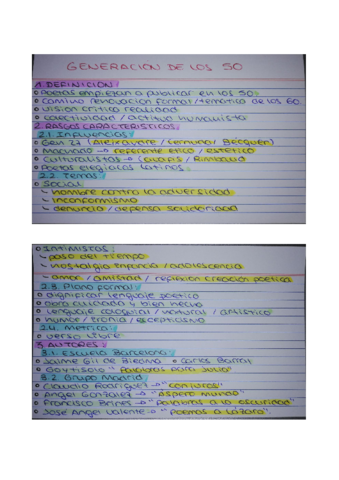 GENERACION DE LOS 50
1. DEFINICION:
o Poetas empiezan a publicar en los 50.
o Camino renovación formal/temática de los 60
o Visión crítica realidad
o Colectividad / actitud humanista
2. RASGOS CARACTERÍSTICOS:
2.1. Influencias
o Gen 27 (Aleixandre / Cernuda / Becquer)
o Machado → referente ético / estético
o Culturalistas → Cavafis / Rimbaud
o Poetas elegíacos latinos.
2.2. Temas:
o Social
- hombre contra la adversidad
- inconformismo
- denuncia / defensa solidaridad
o Intimistas:
- paso del tiempo
- nostalgia infancia / adolescencia
- amor / amistad / reflexión creación poética
2.3. Plano formal:
o dignificar lenguaje poético
o obra cuidada y bien hecha
o Lenguaje coloquial / natural / artístico
o humor / ironía / escepticismo
2.4. Métrica:
o verso libre
3. AUTORES:
3.1. Escuela Barcelona:
o Jaime Gil de Biedma o Carlos Barral
o Goytisolo "Palabras para Julia"
3.2. Grupo Madrid
o Claudio Rodríguez → "conjuros"
o Angel González → "Áspero mundo"
o Francisco Brines → "Palabras a la oscuridad"
o José Angel Valente → "Poemas a Lázaro".